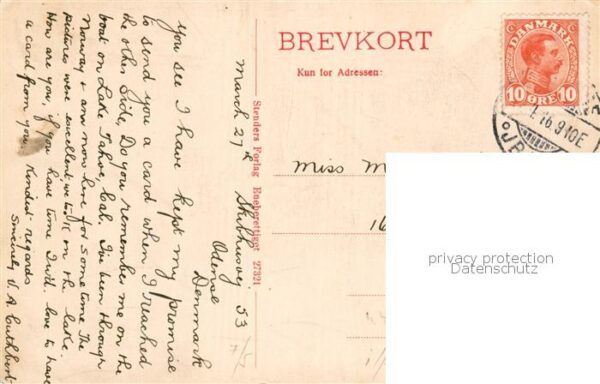 BREVKORT
Kun for Adressen:
DANMARK
10 ØRE 10
Stenders Forlag Eneberettiget 27321
March 27th
Skibhusvej 53
Odense
Denmark
You see I have kept my promise
to send you a card when I reached
the other side. Do you remember me on the
boat on Lake Tahoe, Cal. I've been through
Norway & am now here for some time. The
pictures were excellent, we took on the lake.
How are you, if you have time I'd love to have
a card from you. Kindest regards
Sincerely V. A.
Miss M
16
7/5
privacy protection
Datenschutz